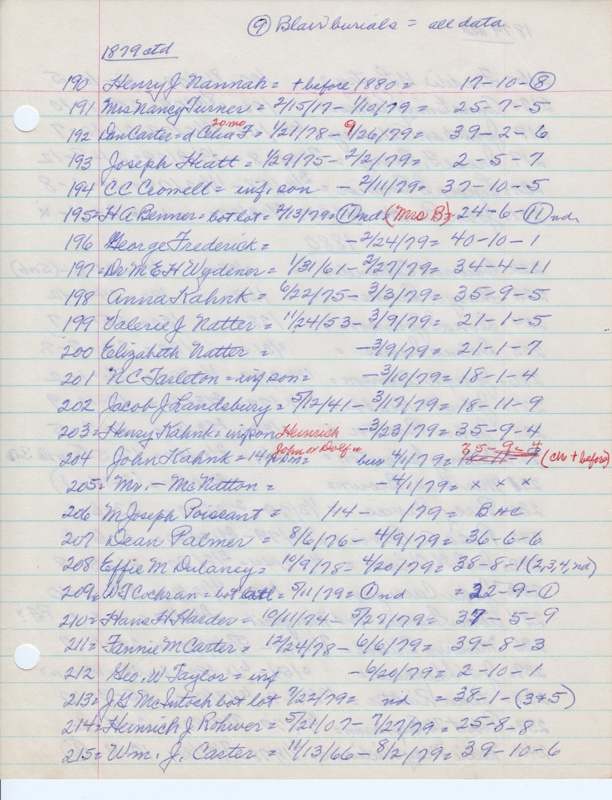 ⑨ Blair burials = all data
1879 ctd
190 Henry J. Nannah = + before 1880 = 17-10-⑧
191 Mrs Nancy Turner = 2/15/17 - 1/10/79 = 25-7-5
192 Dan Carter = d Clia F = 20mo 1/21/78 - 9/26/79 = 39-2-6
193 Joseph Heatt = 1/29/75 - 2/2/79 = 2-5-7
194 C C Cromell = inf. son - 2/11/79 = 37-10-5
195 = H A Benner = bot lot = 2/13/79 = ⑪ nd (Mrs B) 24-6-⑪ nd
196 George Frederick = - 2/24/79 = 40-10-1
197 = Dr M E H Wydener = 1/31/61 - 2/27/79 = 34-4-11
198 Anna Kahnk = 6/22/75 - 3/3/79 = 35-9-5
199 Valerie J. Natter = 11/24/53 - 3/9/79 = 21-1-5
200 Elizabeth Natter = - 3/9/79 = 21-1-7
201 N C Tarleton = inf son = - 3/10/79 = 18-1-4
202 Jacob J. Landsbury = 5/12/41 - 3/17/79 = 18-11-9
203 = Henry Kahnk = inf son Heinrich - 3/23/79 = 35-9-4
204 John Kahnk = 14 John or Dolf bur 4/1/79 = 35-9-4 (chr + before)
205 = Mr. - McNatton = - 4/1/79 = x x x
206 M Joseph Poissant = /14 - /79 = B H C
207 Dean Palmer = 8/6/76 - 4/9/79 = 36-6-6
208 Effie M Dulaney = 10/9/78 - 4/20/79 = 38-8-1 (2,3,4, nd)
209 = W T Cochran = bot 5/11/79 = ① nd = 22-9-①
210 = Hans H Harder = 10/11/74 - 5/27/79 = 37-5-9
211 = Fannie M Carter = 12/24/78 - 6/6/79 = 39-8-3
212 Geo. W Taylor = inf - 6/20/79 = 2-10-1
213 = J. G McIntosh bot lot 7/22/79 = nd = 38-1-(3+5)
214 = Heinrich J Rohwer = 5/21/07 - 7/27/79 = 25-8-8
215 = Wm. J. Carter = 11/13/66 - 8/2/79 = 39-10-6